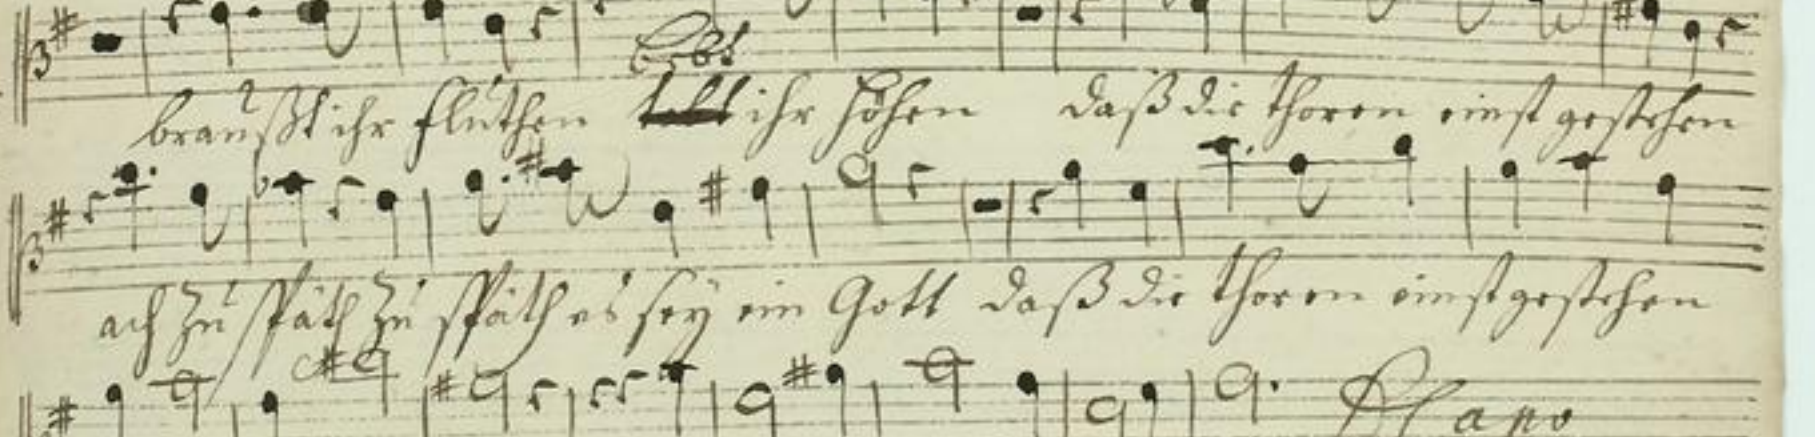 braußt ihr fluthen ihr höhen daß die thoren einst gestehen
ach zu späth zu späth es sey ein Gott daß die thoren einst gestehen